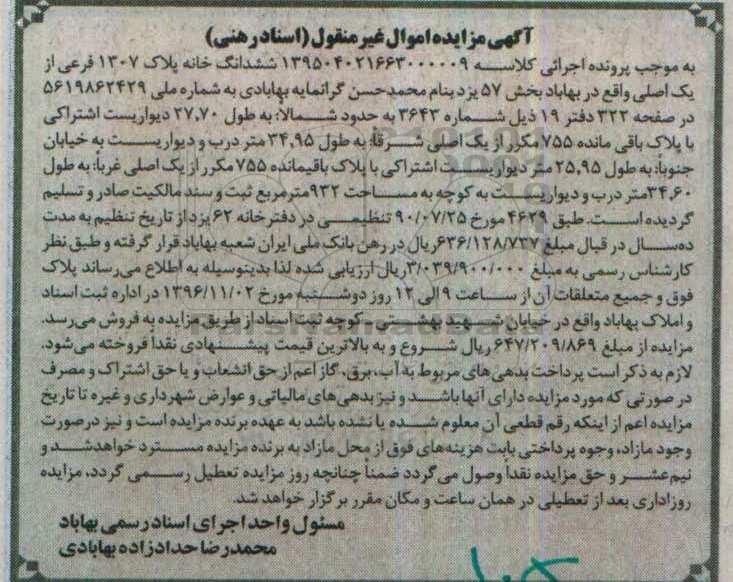 آگهی مزایده اموال غیر منقول (اسناد رهنی)
به موجب پرونده اجرائی کلاسه ۱۳۹۵۰۴۰۲۱۶۶۳۰۰۰۰۰۹ ششدانگ خانه پلاک ۱۳۰۷ فرعی از
یک اصلی واقع در بهاباد بخش ۵۷ یزد بنام محمدحسن گرانمایه بهابادی به شماره ملی ۵۶۱۹۸۶۲۴۲۹
در صفحه ۳۲۲ دفتر ۱۹ ذیل شماره ۳۶۴۳ به حدود شمالاً: به طول ۲۷,۷۰ دیواریست اشتراکی
با پلاک باقی مانده ۷۵۵ مکرر از یک اصلی شرقا: به طول ۳۴,۹۵ متر درب و دیواریست به خیابان
جنوبا: به طول ۲۵,۹۵ متر دیواریست اشتراکی با پلاک باقیمانده ۷۵۵ مکرر از یک اصلی غربا: به طول
۳۴,۶۰ متر درب و دیواریست به کوچه به مساحت ۹۳۲ مترمربع ثبت و سند مالکیت صادر و تسلیم
گردیده است. طبق ۴۶۲۹ مورخ ۹۰/۰۷/۲۵ تنظیمی در دفترخانه ۶۲ یزد از تاریخ تنظیم به مدت
ده‌سال در قبال مبلغ ۶۳۶/۱۲۸/۷۳۷ ریال در رهن بانک ملی ایران شعبه بهاباد قرار گرفته و طبق نظر
کارشناس رسمی به مبلغ ۳/۰۳۹/۹۰۰/۰۰۰ ریال ارزیابی شده لذا بدینوسیله به اطلاع می‌رساند پلاک
فوق و جمیع متعلقات آن از ساعت ۹ الی ۱۲ روز دوشنبه مورخ ۱۳۹۶/۱۱/۰۲ در اداره ثبت اسناد
و املاک بهاباد واقع در خیابان شهید بهشتی - کوچه ثبت اسناد از طریق مزایده به فروش می‌رسد.
مزایده از مبلغ ۶۴۷/۲۰۹/۸۶۹ ریال شروع و به بالاترین قیمت پیشنهادی نقداً فروخته می‌شود،
لازم به ذکر است پرداخت بدهی های مربوط به آب، برق، گاز اعم از حق انشعاب و یا حق اشتراک و مصرف
در صورتی که مورد مزایده دارای آنها باشد و نیز بدهی‌های مالیاتی و عوارض شهرداری و غیره تا تاریخ
مزایده اعم از اینکه رقم قطعی آن معلوم شده یا نشده باشد به عهده برنده مزایده است و نیز در صورت
وجود مازاد، وجوه پرداختی بابت هزینه‌های فوق از محل مازاد به برنده مزایده مسترد خواهد شد و
نیم‌عشر و حق مزایده نقداً وصول می‌گردد ضمناً چنانچه روز مزایده تعطیل رسمی گردد، مزایده
روز اداری بعد از تعطیلی در همان ساعت و مکان مقرر برگزار خواهد شد.
مسئول واحد اجرای اسناد رسمی بهاباد
محمدرضا حدادزاده بهابادی